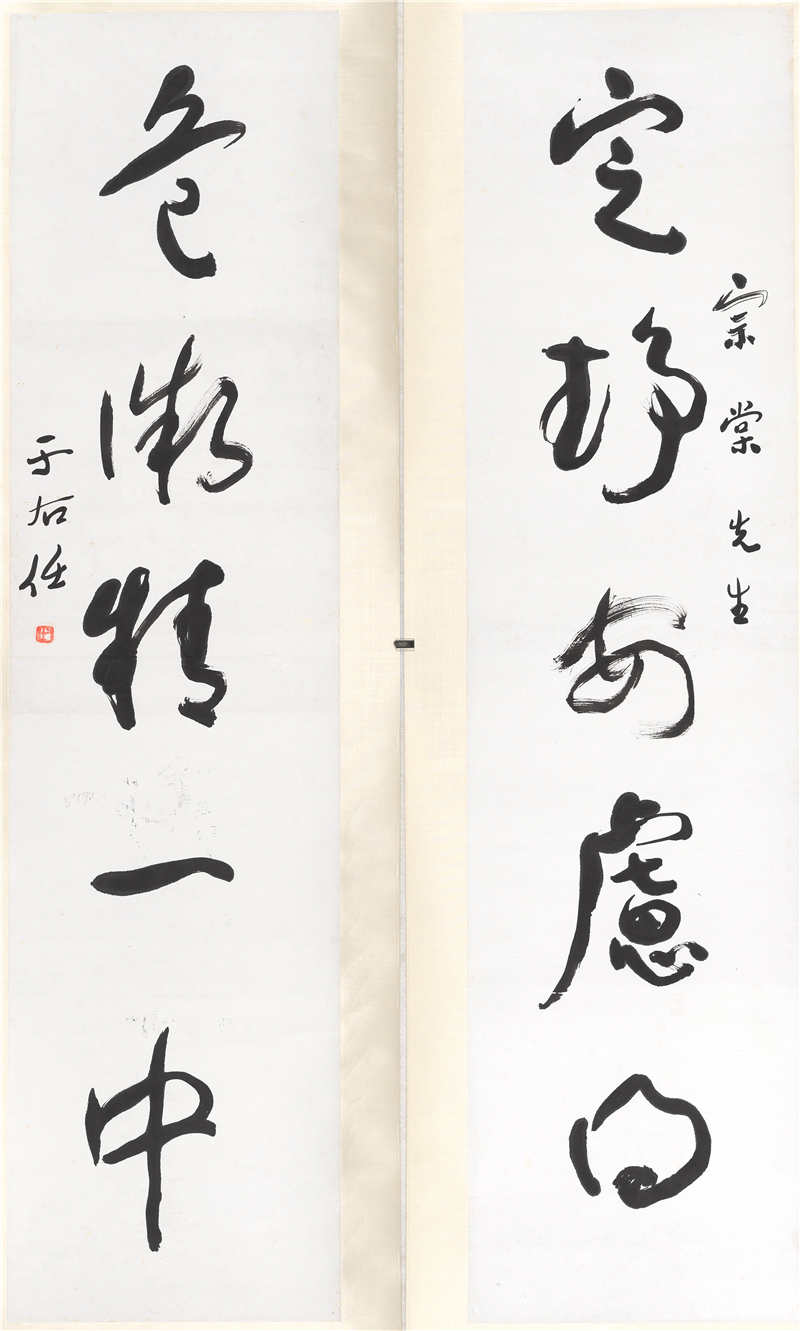 宗棠先生
定静安慮得
危微精一中
于右任